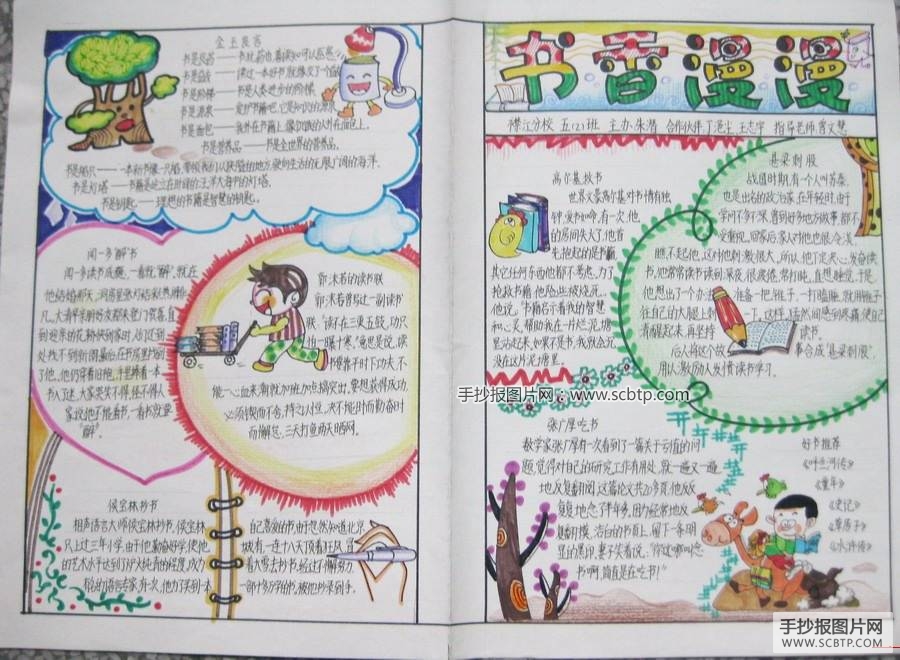 书香漫漫
襟江分校 五(2)班 主办:朱潜 合作伙伴:丁浥尘 王志宇 指导老师:曹文慧
金玉良言
书是良药——书犹药也,善读之可以医愚
书是益友——读过一本好书,就像交了个益友
书是阶梯——书是人类进步的阶梯
书是源泉——爱护书籍吧,它是知识的源泉
书是面包——我扑在书籍上,像饥饿的人扑在面包上。
书是营养品——书是全世界的营养品。
书是船只——一本新书像一只船,带领我们从狭隘的地方,驶向生活的无限广阔的海洋.
书是灯塔——书籍是屹立在时间的汪洋大海中的灯塔.
书是钥匙——理想的书籍是智慧的钥匙。
闻一多“醉”书
闻一多读书成瘾,一看就“醉”,就在
他结婚那天,洞房里张灯结彩,热闹非
凡。大清早亲朋好友都来登门贺喜,直
到迎亲的花轿快到家时,人们还到
处找不到新郎。最后在书房里找到
了他,他仍穿着旧袍,手里捧着一本
书入了迷。大家哭笑不得,怪不得人
家说他不能看书,一看书就要
“醉”。
郭沫若的读书联
郭沫若曾写过一副读书
联:“读不在三更五鼓,功只
怕一曝十寒。”意思是说,读
书要靠平时下功夫,不
能一心血来潮就加班加点搞突击,要想获得成功,
必须锲而不舍,持之以恒,决不能时而勤奋时
而懈怠,三天打鱼两天晒网。
侯宝林抄书
相声语言大师侯宝林抄书,侯宝林
只上过三年小学,由于他勤奋好学,使他
的艺术水平达到了炉火纯青的程度,成为
有名的语言专家。有一次,他为了买到一本
自己喜爱的书,
城,有一连十八天
着大雪去抄书,经过
一部十多万字的书,被他抄录到手。
高尔基救书
世界文豪高尔基对书情有独
钟,爱书如命,有一次,他
的房间失火了,他首
先抱起的是书籍,
其它任何东西他都不考虑。为了
抢救书籍,他险些被烧死。
他说:“书籍启示着我的智慧
和心灵,帮助我在一片烂泥塘
里站起来,如果不是书,我就会沉
没在这片泥塘里。
悬梁刺股
战国时期,有一个人叫苏秦,
也是出名的政治家。在年轻时,由于
学问不多不深,曾到好多地方做事,都不
受重视。回家后,家人对他也很冷淡,
瞧不起他,这对他刺激很大。所以,他下定决心,发奋读
书。他常常读书到深夜,很疲倦,常打盹,直想睡觉,于是,
他想出了一个办法,准备一把锥子,一打瞌睡,就用锥子
往自己的大腿上刺一下。这样,猛然间感到疼痛,使自己
清醒起来,再坚持读书。
后人将这个故事合成“悬梁刺股”,
用以激励人发愤读书学习。
张广厚吃书
数学家张广厚有一次看到了一篇关于亏值的问
题,觉得对自己的研究工作有用处,就一遍又一遍
地反复翻阅。这篇论文共20多页,他反
复地念了半年多。因为经常地反
复翻摸,洁白的书页上,留下一条明
显的黑印,妻子笑着说:“你这哪叫念
书啊,简直是在吃书!”
好书推荐
《呼兰河传》
《童年》
《史记》
《草房子》
《水浒传》
手抄报图片网:www.scbtp.com
手抄报图片网
WWW.SCBTP.COM